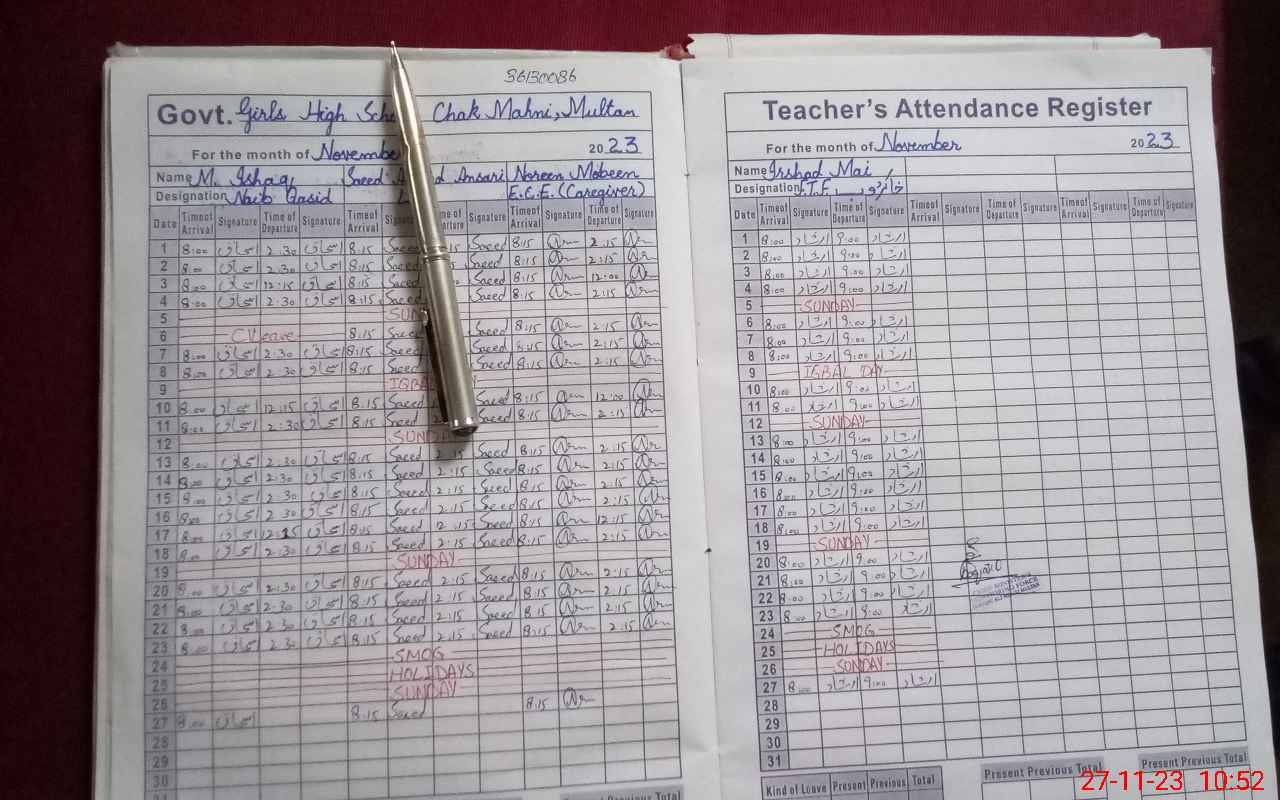 36130086
Govt. Girls High Chak Mahni, Multan
For the month of November 2023
Name M. Ishaq Saeed Ansari Noreen Mobeen
Designation Naib Qasid E.C.E. (Caregiver)
Date Time of Arrival Signature Time of Departure Signature Time of Arrival Signature Signature Time of Arrival Signature Time of Departure Signature
1 8:00 اسحاق 2:30 اسحاق 8:15 Saeed 8:15 2:15
2 8:00 اسحاق 2:30 اسحاق 8:15 Saeed 8:15 2:15
3 8:00 اسحاق 12:15 اسحاق 8:15 Saeed 8:15 12:00
4 8:00 اسحاق 2:30 اسحاق 8:15 Saeed Saeed 8:15 2:15
5
6 C.Leave 8:15 Saeed 8:15 2:15
7 8:00 اسحاق 2:30 اسحاق 8:15 Saeed Saeed 8:15 2:15
8 8:00 اسحاق 2:30 اسحاق 8:15 Saeed Saeed 8:15 2:15
9
10 8:00 اسحاق 12:15 اسحاق 8:15 Saeed Saeed 8:15 12:00
11 8:00 اسحاق 2:30 اسحاق 8:15 Saeed Saeed 8:15 2:15
12 SUNDAY
13 8:00 اسحاق 2:30 اسحاق 8:15 Saeed 2:15 Saeed 8:15 2:15
14 8:00 اسحاق 2:30 اسحاق 8:15 Saeed 2:15 Saeed 8:15 2:15
15 8:00 اسحاق 2:30 اسحاق 8:15 Saeed 2:15 Saeed 8:15 2:15
16 8:00 اسحاق 2:30 اسحاق 8:15 Saeed 2:15 Saeed 8:15 2:15
17 8:00 اسحاق 12:15 اسحاق 8:15 Saeed 12:15 Saeed 8:15 12:15
18 8:00 اسحاق 2:30 اسحاق 8:15 Saeed 2:15 Saeed 8:15 2:15
19 SUNDAY
20 8:00 اسحاق 2:30 اسحاق 8:15 Saeed 2:15 Saeed 8:15 2:15
21 8:00 اسحاق 2:30 اسحاق 8:15 Saeed 2:15 Saeed 8:15 2:15
22 8:00 اسحاق 2:30 اسحاق 8:15 Saeed 2:15 Saeed 8:15 2:15
23 8:00 اسحاق 2:30 اسحاق 8:15 Saeed 2:15 Saeed 8:15 2:15
24 SMOG
25 HOLIDAYS
26 SUNDAY
27 8:00 اسحاق 8:15 Saeed 8:15
28
29
30
Teacher's Attendance Register
For the month of November 2023
Name Irshad Mai
Designation F.T.F. خاکروب
Date Time of Arrival Signature Time of Departure Signature Time of Arrival Signature Time of Departure Signature Time of Arrival Signature Time of Departure Signature
1 8:00 ارشاد 9:00 ارشاد
2 8:00 ارشاد 9:00 ارشاد
3 8:00 ارشاد 9:00 ارشاد
4 8:00 ارشاد 9:00 ارشاد
5 SUNDAY
6 8:00 ارشاد 9:00 ارشاد
7 8:00 ارشاد 9:00 ارشاد
8 8:00 ارشاد 9:00 ارشاد
9 IQBAL DAY
10 8:00 ارشاد 9:00 ارشاد
11 8:00 ارشاد 9:00 ارشاد
12 SUNDAY
13 8:00 ارشاد 9:00 ارشاد
14 8:00 ارشاد 9:00 ارشاد
15 8:00 ارشاد 9:00 ارشاد
16 8:00 ارشاد 9:00 ارشاد
17 8:00 ارشاد 9:00 ارشاد
18 8:00 ارشاد 9:00 ارشاد
19 SUNDAY
20 8:00 ارشاد 9:00 ارشاد
21 8:00 ارشاد 9:00 ارشاد
22 8:00 ارشاد 9:00 ارشاد
23 8:00 ارشاد 9:00 ارشاد
24 SMOG
25 HOLIDAYS
26 SUNDAY
27 8:00 ارشاد 9:00 ارشاد
28
29
30
31
Kind of Leave Present Previous Total Present Previous Total Present Previous Total
27-11-23 10:52